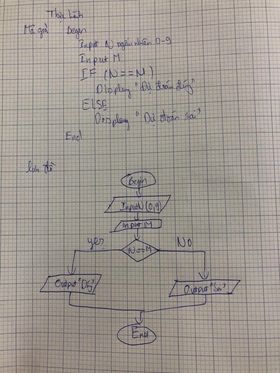 Mã giả Begin
Input N ngẫu nhiên 0-9
Input M
IF (N==N)
Display "Dự đoán đúng"
ELSE
Display "Dự đoán sai"
End
lưu đồ
Begin
Input N (0,9)
Input M
yes N==M No
Output "Đg" Output "Sai"
End